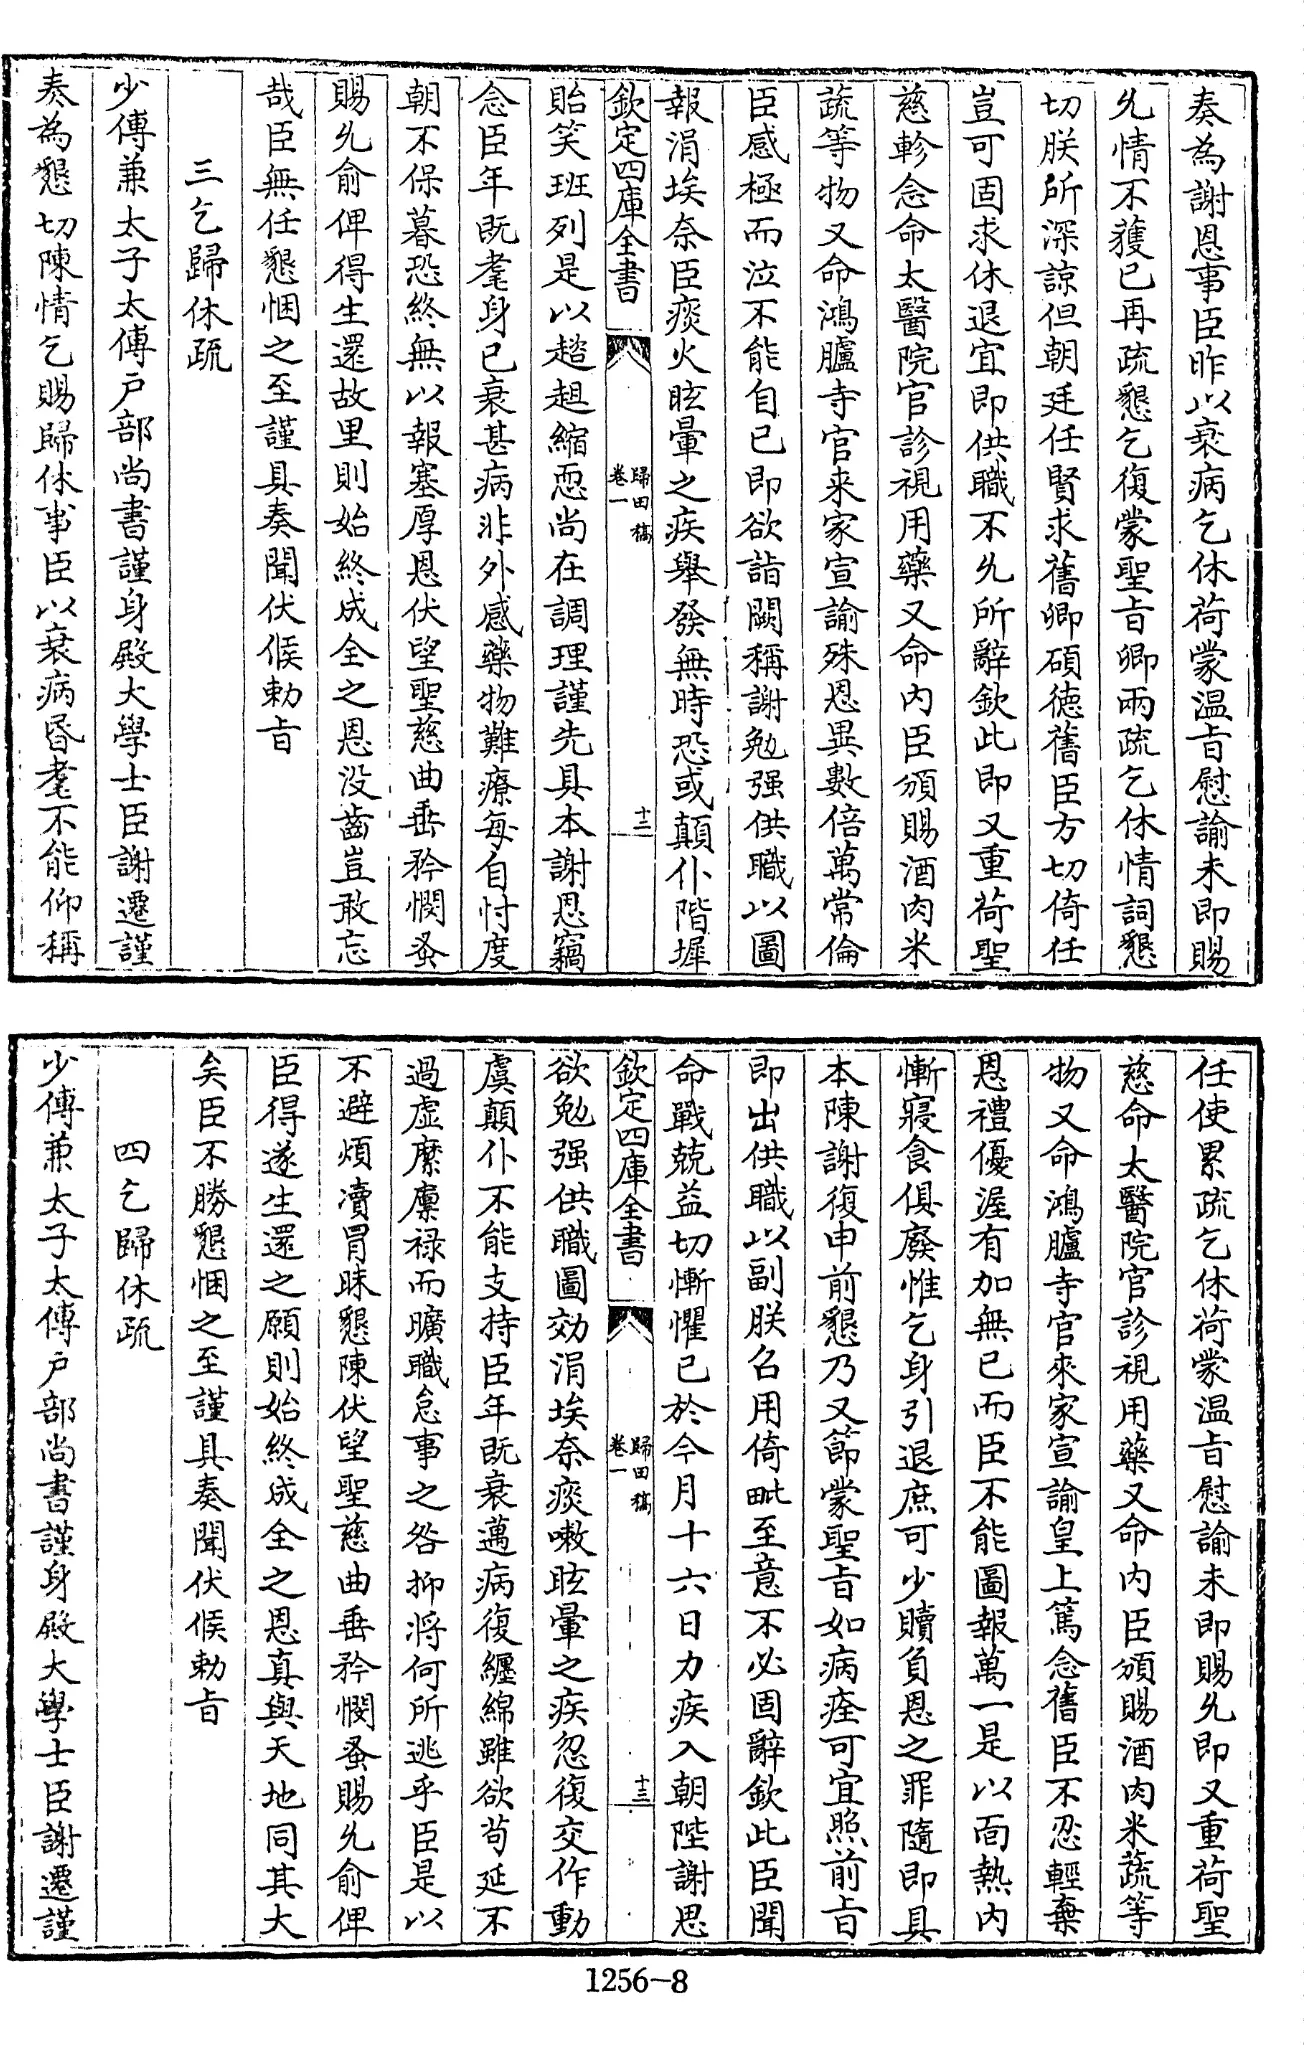 奏為謝恩事臣昨以衰病乞休荷蒙温旨慰諭未即賜
允情不獲已再疏懇乞復蒙聖旨卿兩疏乞休情詞懇
切朕所深諒但朝廷任賢求舊卿碩德舊臣方切倚任
豈可固求休退宜即供職不允所辭欽此即又重荷聖
慈軫念命太醫院官診視用藥又命内臣頒賜酒肉米
蔬等物又命鴻臚寺官来家宣諭殊恩異數倍萬常倫
臣感極而泣不能自已即欲詣闕稱謝勉强供職以圖
報涓埃奈臣痰火眩暈之疾舉發無時恐或顛仆階墀
欽定四庫全書
歸田稿
卷一
十二
貽笑班列是以趑趄縮恧尚在調理謹先具本謝恩竊
念臣年既耄身已衰甚病非外感藥物難療每自忖度
朝不保暮恐終無以報塞厚恩伏望聖慈曲垂矜憫蚤
賜允俞俾得生還故里則始終成全之恩没齒豈敢忘
哉臣無任懇悃之至謹具奏聞伏候勅旨
三乞歸休疏
少傅兼太子太傅户部尚書謹身殿大學士臣謝遷謹
奏為懇切陳情乞賜歸休事臣以衰病昏耄不能仰稱
任使累疏乞休荷蒙温旨慰諭未即賜允即又重荷聖
慈命太醫院官診視用藥又命内臣頒賜酒肉米蔬等
物又命鴻臚寺官來家宣諭皇上篤念舊臣不忍輕棄
恩禮優渥有加無已而臣不能圖報萬一是以面熱内
慚寢食俱廢惟乞身引退庶可少贖負恩之罪隨即具
本陳謝復申前懇乃又節蒙聖旨如病痊可宜照前旨
即出供職以副朕召用倚毗至意不必固辭欽此臣聞
命戰兢益切慚懼已於今月十六日力疾入朝陛謝思
欽定四庫全書
歸田稿
卷一
十三
欲勉强供職圖効涓埃奈痰嗽眩暈之疾忽復交作動
虞顛仆不能支持臣年既衰邁病復纏綿雖欲苟延不
過虚縻廩禄而曠職怠事之咎抑將何所逃乎臣是以
不避煩瀆冒昧懇陳伏望聖慈曲垂矜憫蚤賜允俞俾
臣得遂生還之願則始終成全之恩真與天地同其大
矣臣不勝懇悃之至謹具奏聞伏候勅旨
四乞歸休疏
少傅兼太子太傅户部尚書謹身殿大學士臣謝遷謹
1256-8